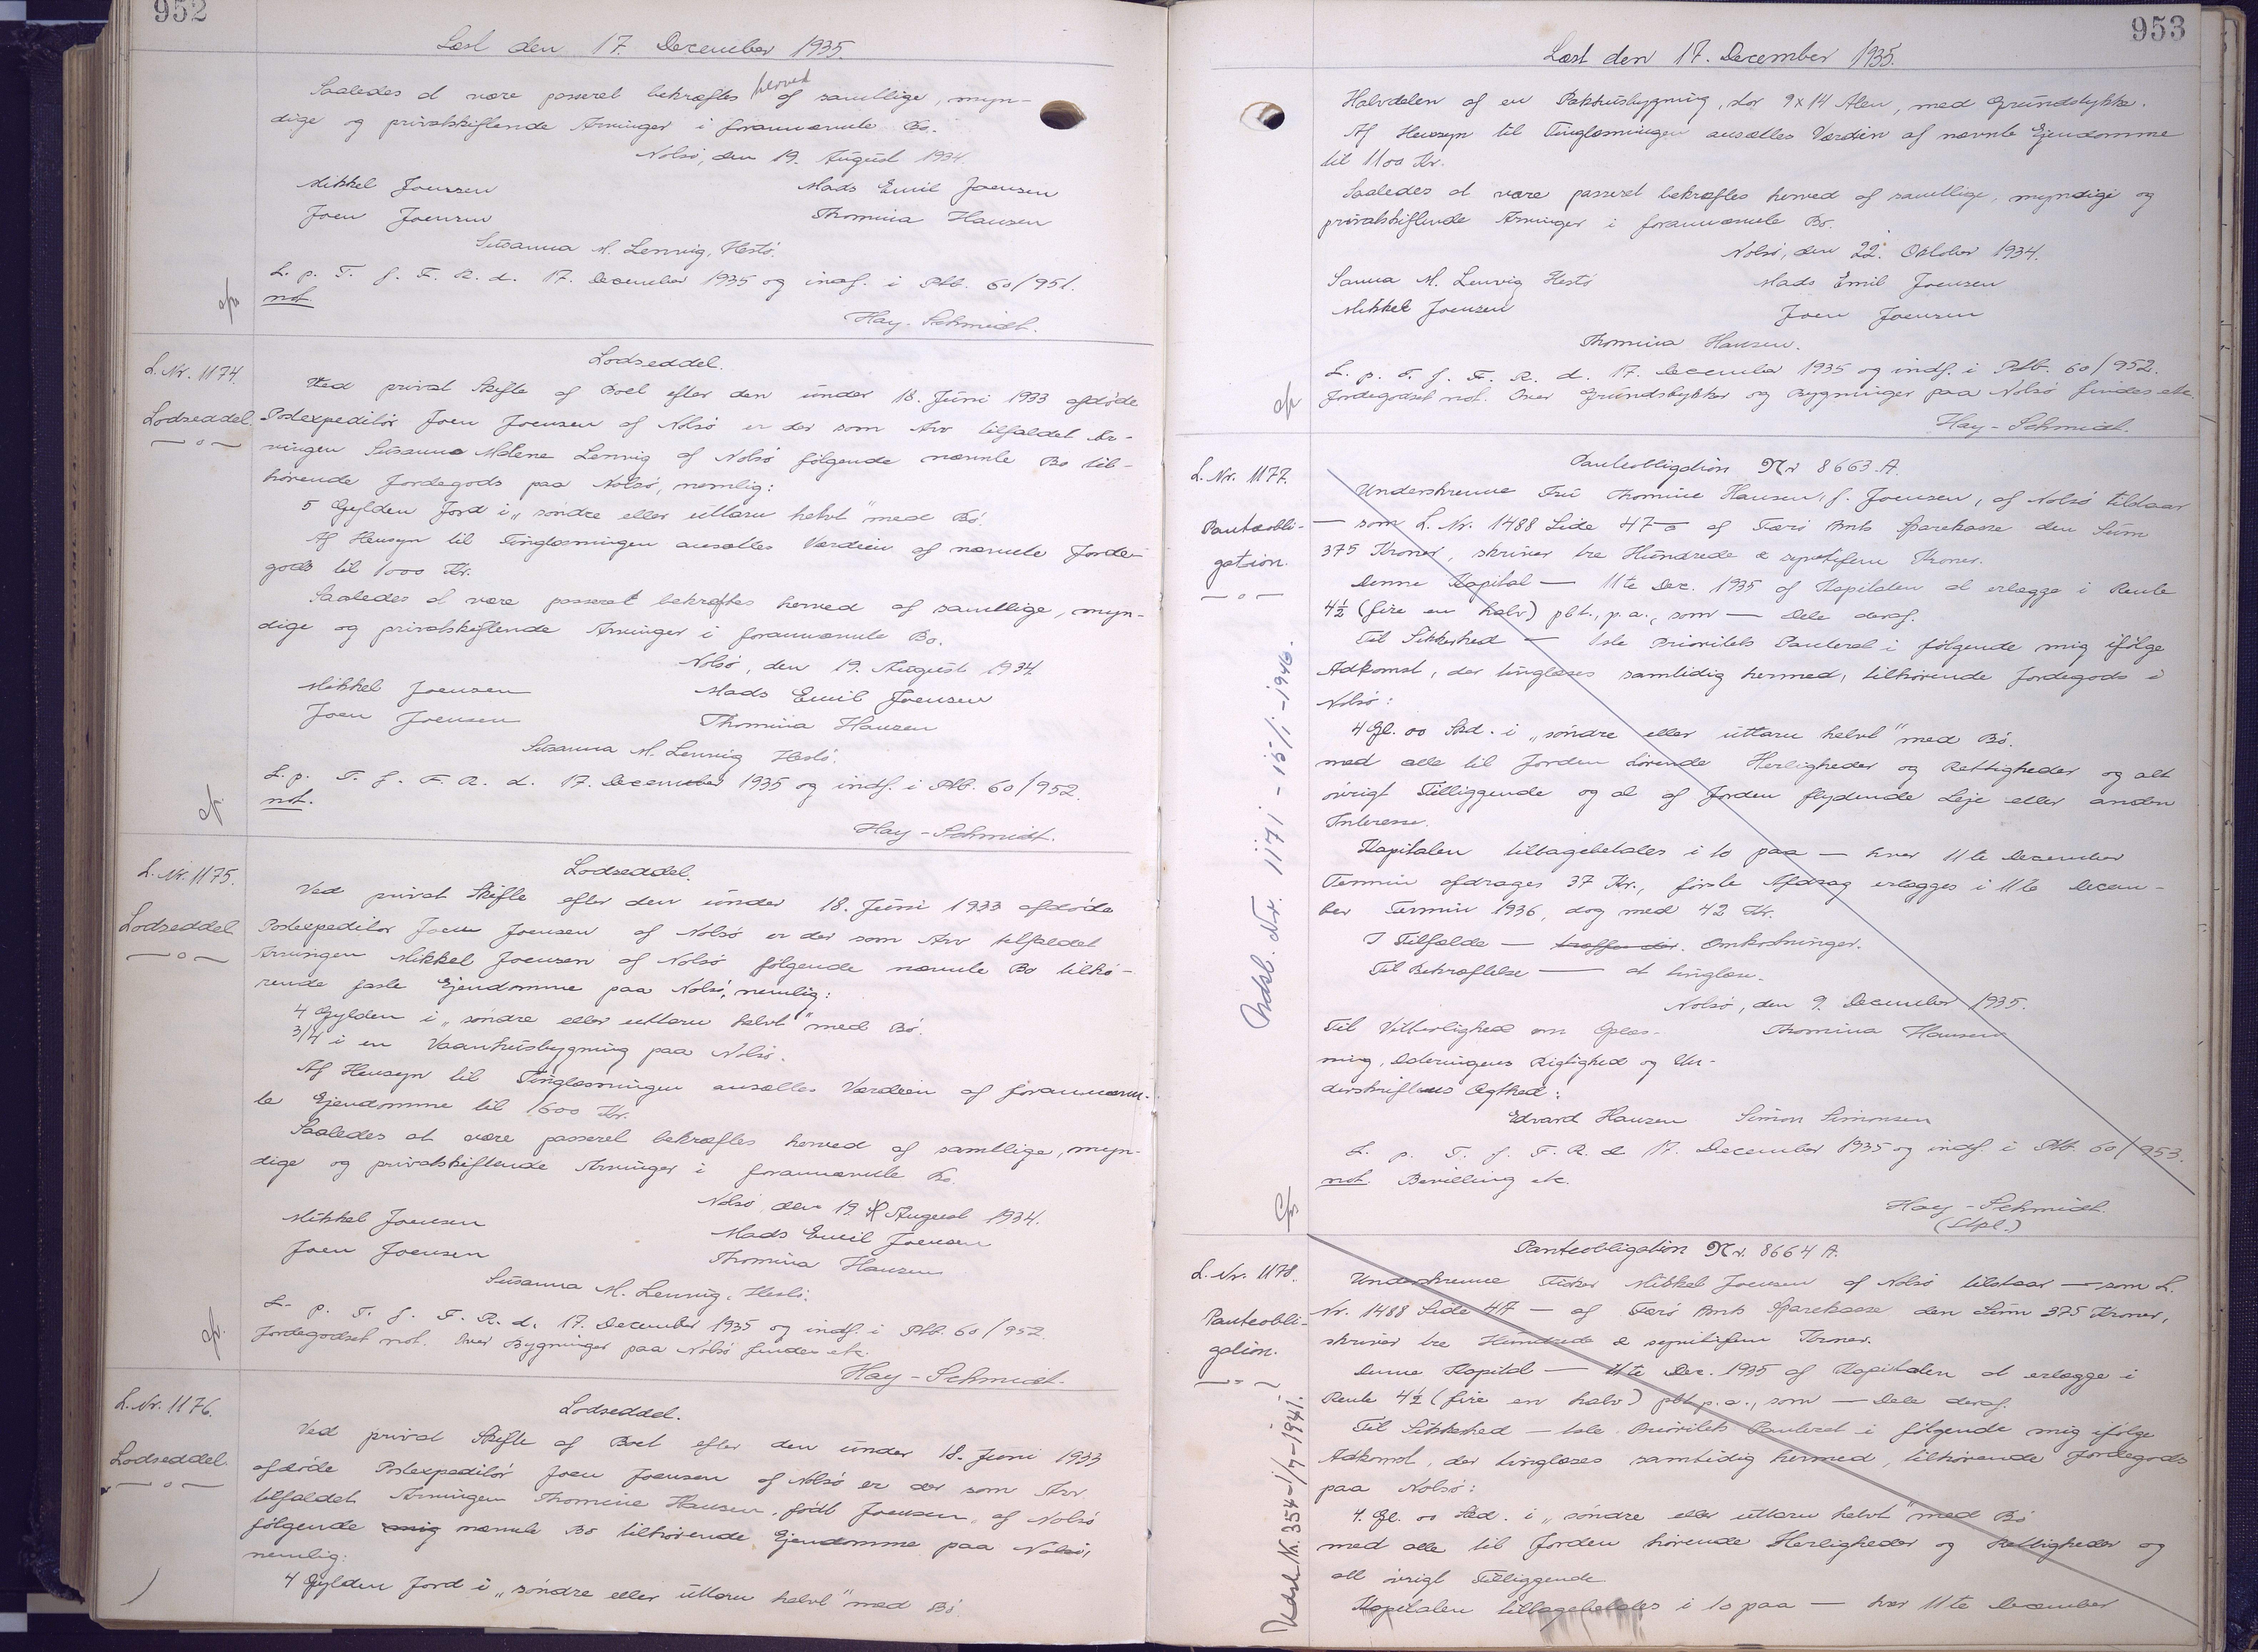 952
Læst den 17. December 1935.
Saaledes at være passeret bekræftes herved af samtlige, myn-
dige og privatskiftende Arvinger i forannævnte Bo.
Nolsö, den 19. August 1934.
Mikkel Joensen Mads Emil Joensen
Joen Joensen Thomina Hansen
Susanna M. Lenvig, Hestö.
L. p. T. f. F. R. d. 17. December 1935 og indf. i Ptb. 60/951.
not.
Hay-Schmidt.
L. Nr. 1174.
Lodseddel
Lodseddel.
Ved privat Skifte af Boet efter den under 18. Juni 1933 afdöde
Postexpeditör Joen Joensen af Nolsö er der som Arv tilfaldet Ar-
vingen Susanna Malene Lenvig af Nolsö fölgende nævnte Bo til-
hörende Jordegods paa Nolsö, nemlig:
5 Gylden Jord i „söndre eller uttaru helvt" med Bö.
Af Hensyn til Tinglæsningen ansættes Værdien af nævnte Jorde-
gods til 1000 Kr.
Saaledes at være passeret bekræftes herved af samtlige, myn-
dige og privatskiftende Arvinger i forannævnte Bo.
Nolsö, den 19. August 1934
Mikkel Joensen Mads Emil Joensen
Joen Joensen Thomina Hansen
Susanna M. Lenvig Hestö.
L. p. T. f. F. R. d. 17. December 1935 og indf. i Ptb. 60/952.
not.
Hay-Schmidt.
L. Nr. 1175.
Lodseddel
Lodseddel.
Ved privat Skifte efter den under 18. Juni 1933 afdöde
Postexpeditör Joen Joensen af Nolsö er der som Arv tilfaldet
Arvingen Mikkel Joensen af Nolsö fölgende nævnte Bo tilhö-
rende faste Ejendomme paa Nolsö, nemlig:
4 Gylden i „söndre eller uttaru helvt" med Bö.
3/4 i en Vaanhusbygning paa Nolsö.
Af Hensyn til Tinglæsningen ansættes Værdien af forannævn-
te Ejendomme til 1600 Kr.
Saaledes at være passeret bekræftes herved af samtlige, myn-
dige og privatskiftende Arvinger i forannævnte Bo.
Nolsö, den 19. August 1934.
Mikkel Joensen Mads Emil Joensen
Joen Joensen Thomina Hansen
Susanna M. Lenvig, Hestö.
L. p. T. f. F. R. d. 17. December 1935 og indf. i Ptb. 60/952.
Jordegodset not. Over Bygninger paa Nolsö findes etc.
Hay-Schmidt.
L. Nr. 1176.
Lodseddel.
Lodseddel.
Ved privat Skifte af Boet efter den under 18. Juni 1933
afdöde Postexpeditör Joen Joensen af Nolsö er der som Arv
tilfaldet Arvingen Thomine Hansen, födt Joensen, af Nolsö
fölgende mig nævnte Bo tilhörende Ejendomme paa Nolsö,
nemlig:
4 Gylden Jord i „söndre eller uttaru helvt" med Bö
953
Læst den 17. December 1935.
Halvdelen af en Pakhusbygning, stor 9x14 Alen, med Grundstykke.
Af Hensyn til Tinglæsningen ansættes Værdien af nævnte Ejendomme
til 1100 Kr.
Saaledes at være passeret bekræftes herved af samtlige, myndige og
privatskiftende Arvinger i forannævnte Bo.
Nolsö, den 22. Oktober 1934.
Sanna M. Lenvig Hestö Mads Emil Joensen
Mikkel Joensen Joen Joensen
Thomina Hansen.
L. p. T. f. F. R. d. 17. December 1935 og indf. i Ptb. 60/952.
Jordegodset not. Over Grundstykker og Bygninger paa Nolsö findes etc.
Hay-Schmidt.
L. Nr. 1177.
Panteobli-
gation.
Udsl. Nr. 1171 - 15/1 - 1946.
Panteobligation Nr 8663 A.
Underskrevne Fru Thomine Hansen, f. Joensen, af Nolsö tilstaar
— som L. Nr. 1488 Side 47 — af Færö Amts Sparekasse den Sum
375 Kroner, skriver tre Hundrede & syvtifem Kroner.
Denne Kapital — 11te Dec. 1935 af Kapitalen at erlægge i Rente
4½ (fire en halv) pCt., p. a., som — Dele deraf.
Til Sikkerhed — 1ste Prioritets Panteret i fölgende mig ifölge
Adkomst, der tinglæses samtidig hermed, tilhörende Jordegods i
Nolsö:
4 Gl. 00 Skd. i „söndre eller uttaru helvt" med Bö.
med alle til Jorden hörende Herligheder og Rettigheder og alt
övrigt Tilliggende og al af Jorden flydende Leje eller anden
Interesse.
Kapitalen tilbagebetales i 10 paa — hver 11te December
Termin afdrages 37 Kr., förste Afdrag erlægges i 11te Decem-
ber Termin 1936, dog med 42 Kr.
I Tilfælde — Omkostninger.
Til Bekræftelse — at tinglæse.
Nolsö, den 9. December 1935.
Til Vitterlighed om Oplæs- Thomina Hansen
ning, Dateringens Rigtighed og Un-
derskriftens Ægthed:
Edvard Hansen Simon Simonsen
L. p. T. f. F. R. d. 17. December 1935 og indf. i Ptb. 60/953.
not. Bevilling etc.
Hay-Schmidt.
(Stpl.)
L. Nr. 1178.
Panteobli-
gation.
Udsl. Nr. 354 - 1/7 - 1941.
Panteobligation Nr. 8664 A.
Underskrevne Fisker Mikkel Joensen af Nolsö tilstaar — som L.
Nr. 1488 Side 47 — af Færö Amts Sparekasse den Sum 375 Kroner,
skriver tre Hundrede & syvtifem Kroner.
Denne Kapital — 11te Dec. 1935 af Kapitalen at erlægge i
Rente 4½ (fire en halv) pCt. p. a., som — Dele deraf.
Til Sikkerhed — 1ste Prioritets Panteret i fölgende mig ifölge
Adkomst, der tinglæses samtidig hermed, tilhörende Jordegods
paa Nolsö:
4. Gl. 00 Skd. i „söndre eller uttaru helvt" med Bö
med alle til Jorden hörende Herligheder og Rettigheder og
alt övrigt Tilliggende
Kapitalen tilbagebetales i 10 paa — hver 11te December